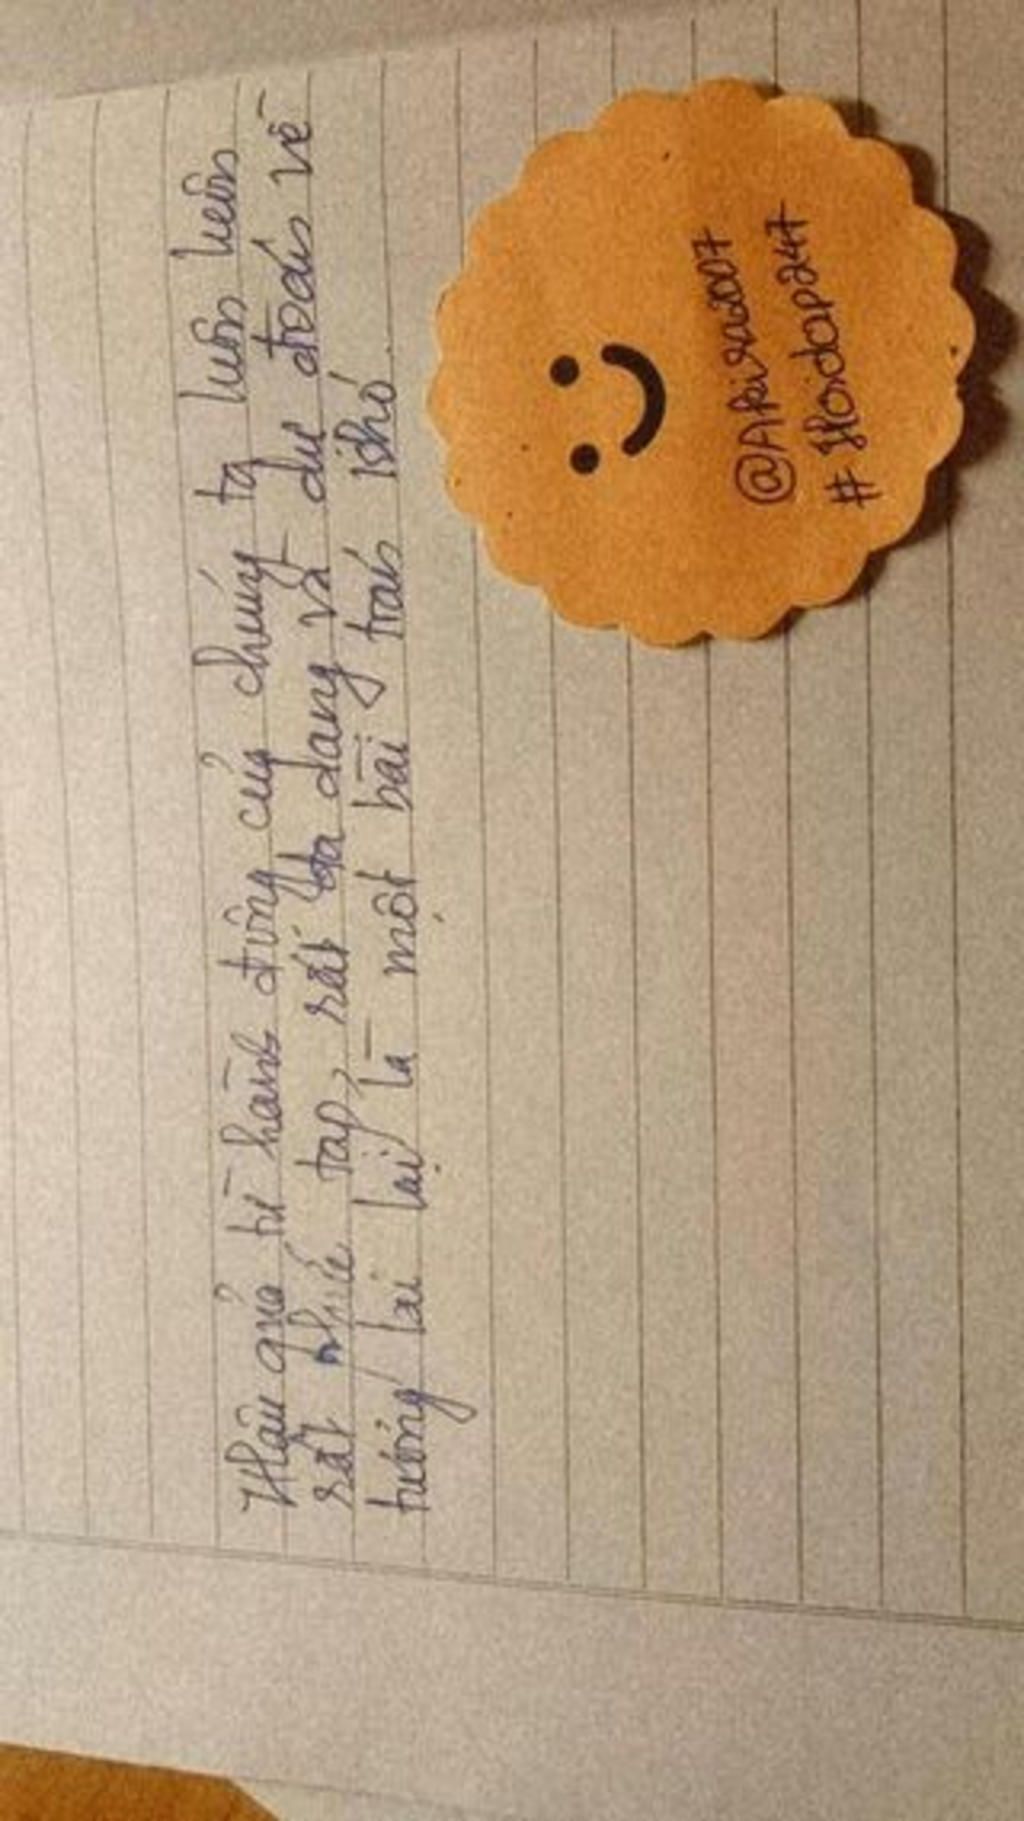 Hậu quả từ hành động của chúng ta luôn luôn
rất phức tạp, rất đa dạng và dự đoán về
tương lai lại là một bài toán khó.
@Akira2007
#Hoidap247